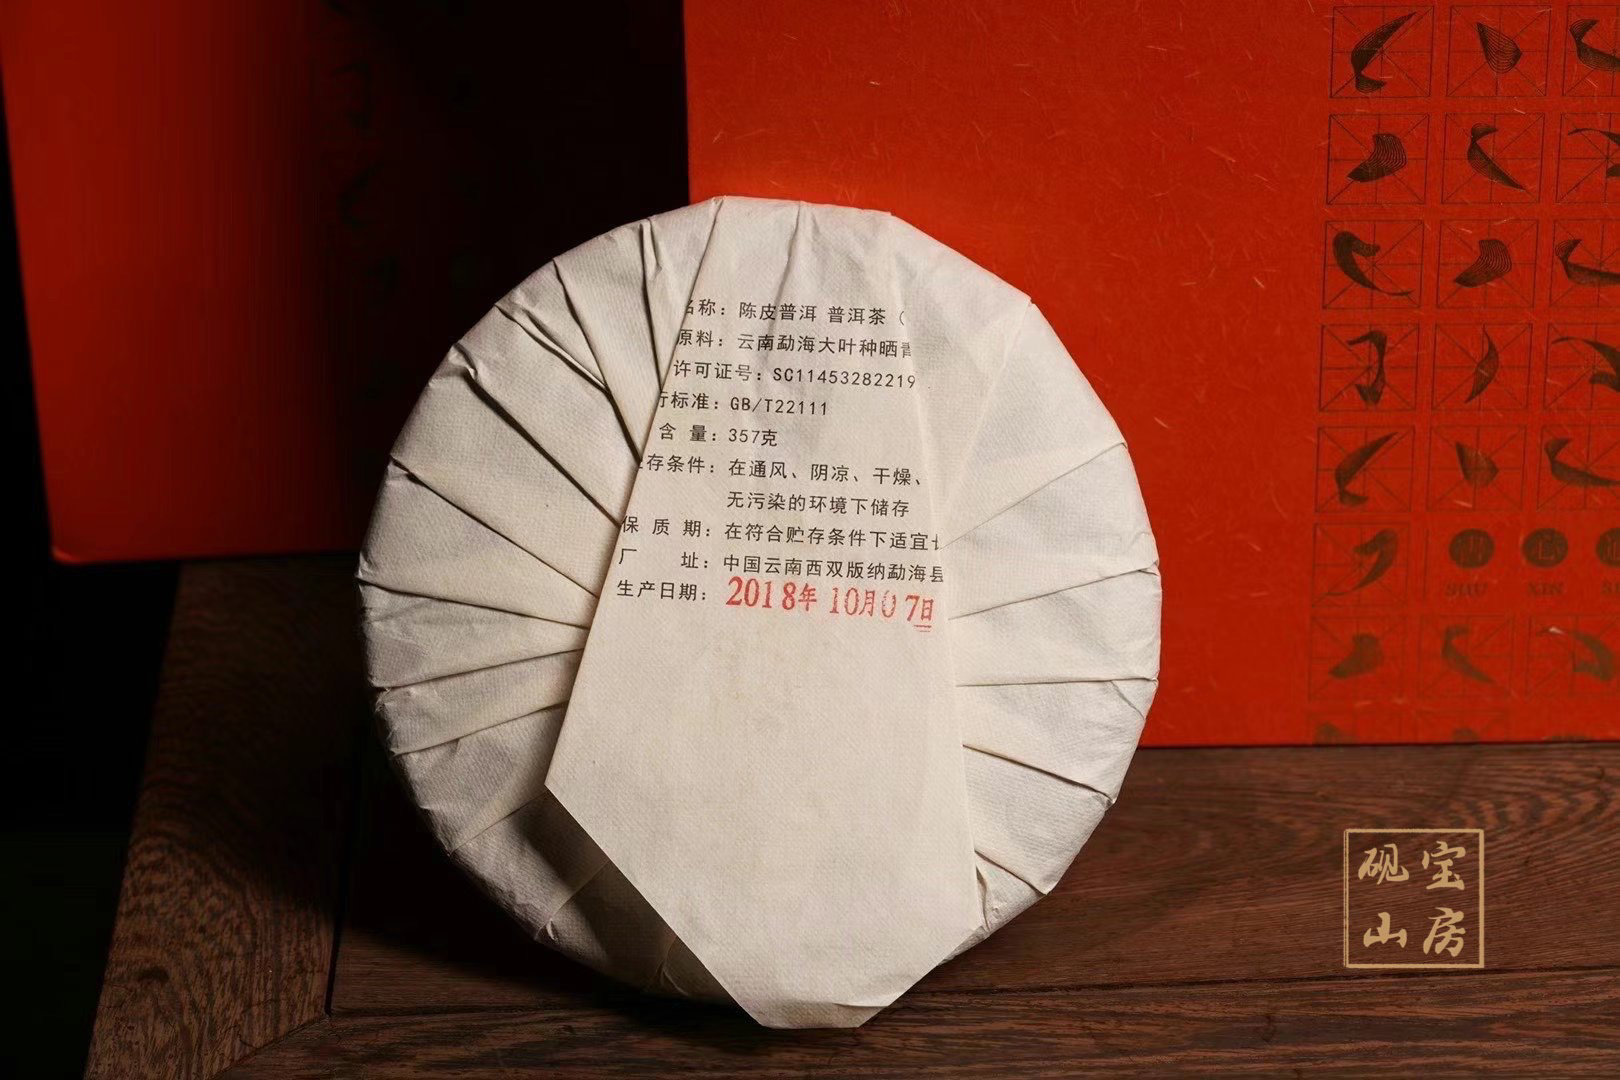 名称：陈皮普洱 普洱茶（
原料：云南勐海大叶种晒青
许可证号：SC11453282219
行标准：GB/T22111
含 量：357克
存条件：在通风、阴凉、干燥、
无污染的环境下储存
保 质 期：在符合贮存条件下适宜长
厂 址：中国云南西双版纳勐海县
生产日期：2018年10月07日
SHU XIN
宝砚
山房